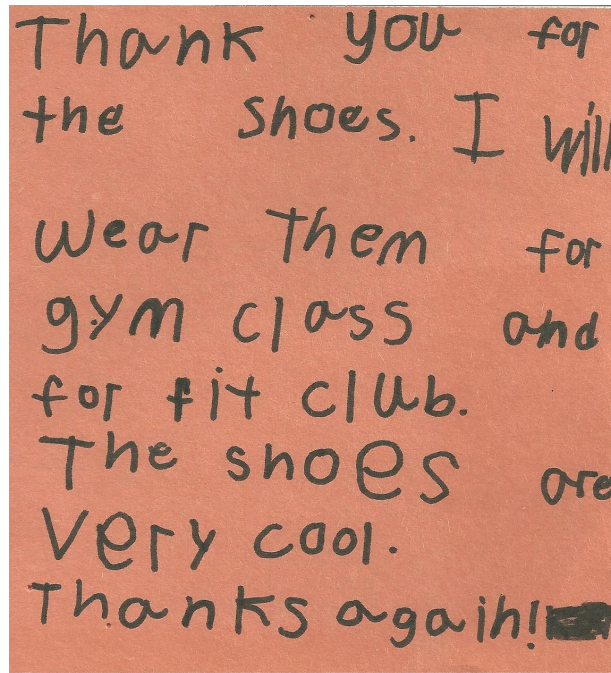 Thank you for
the shoes. I will
wear them for
gym class and
for fit club.
The shoes are
very cool.
Thanks again!